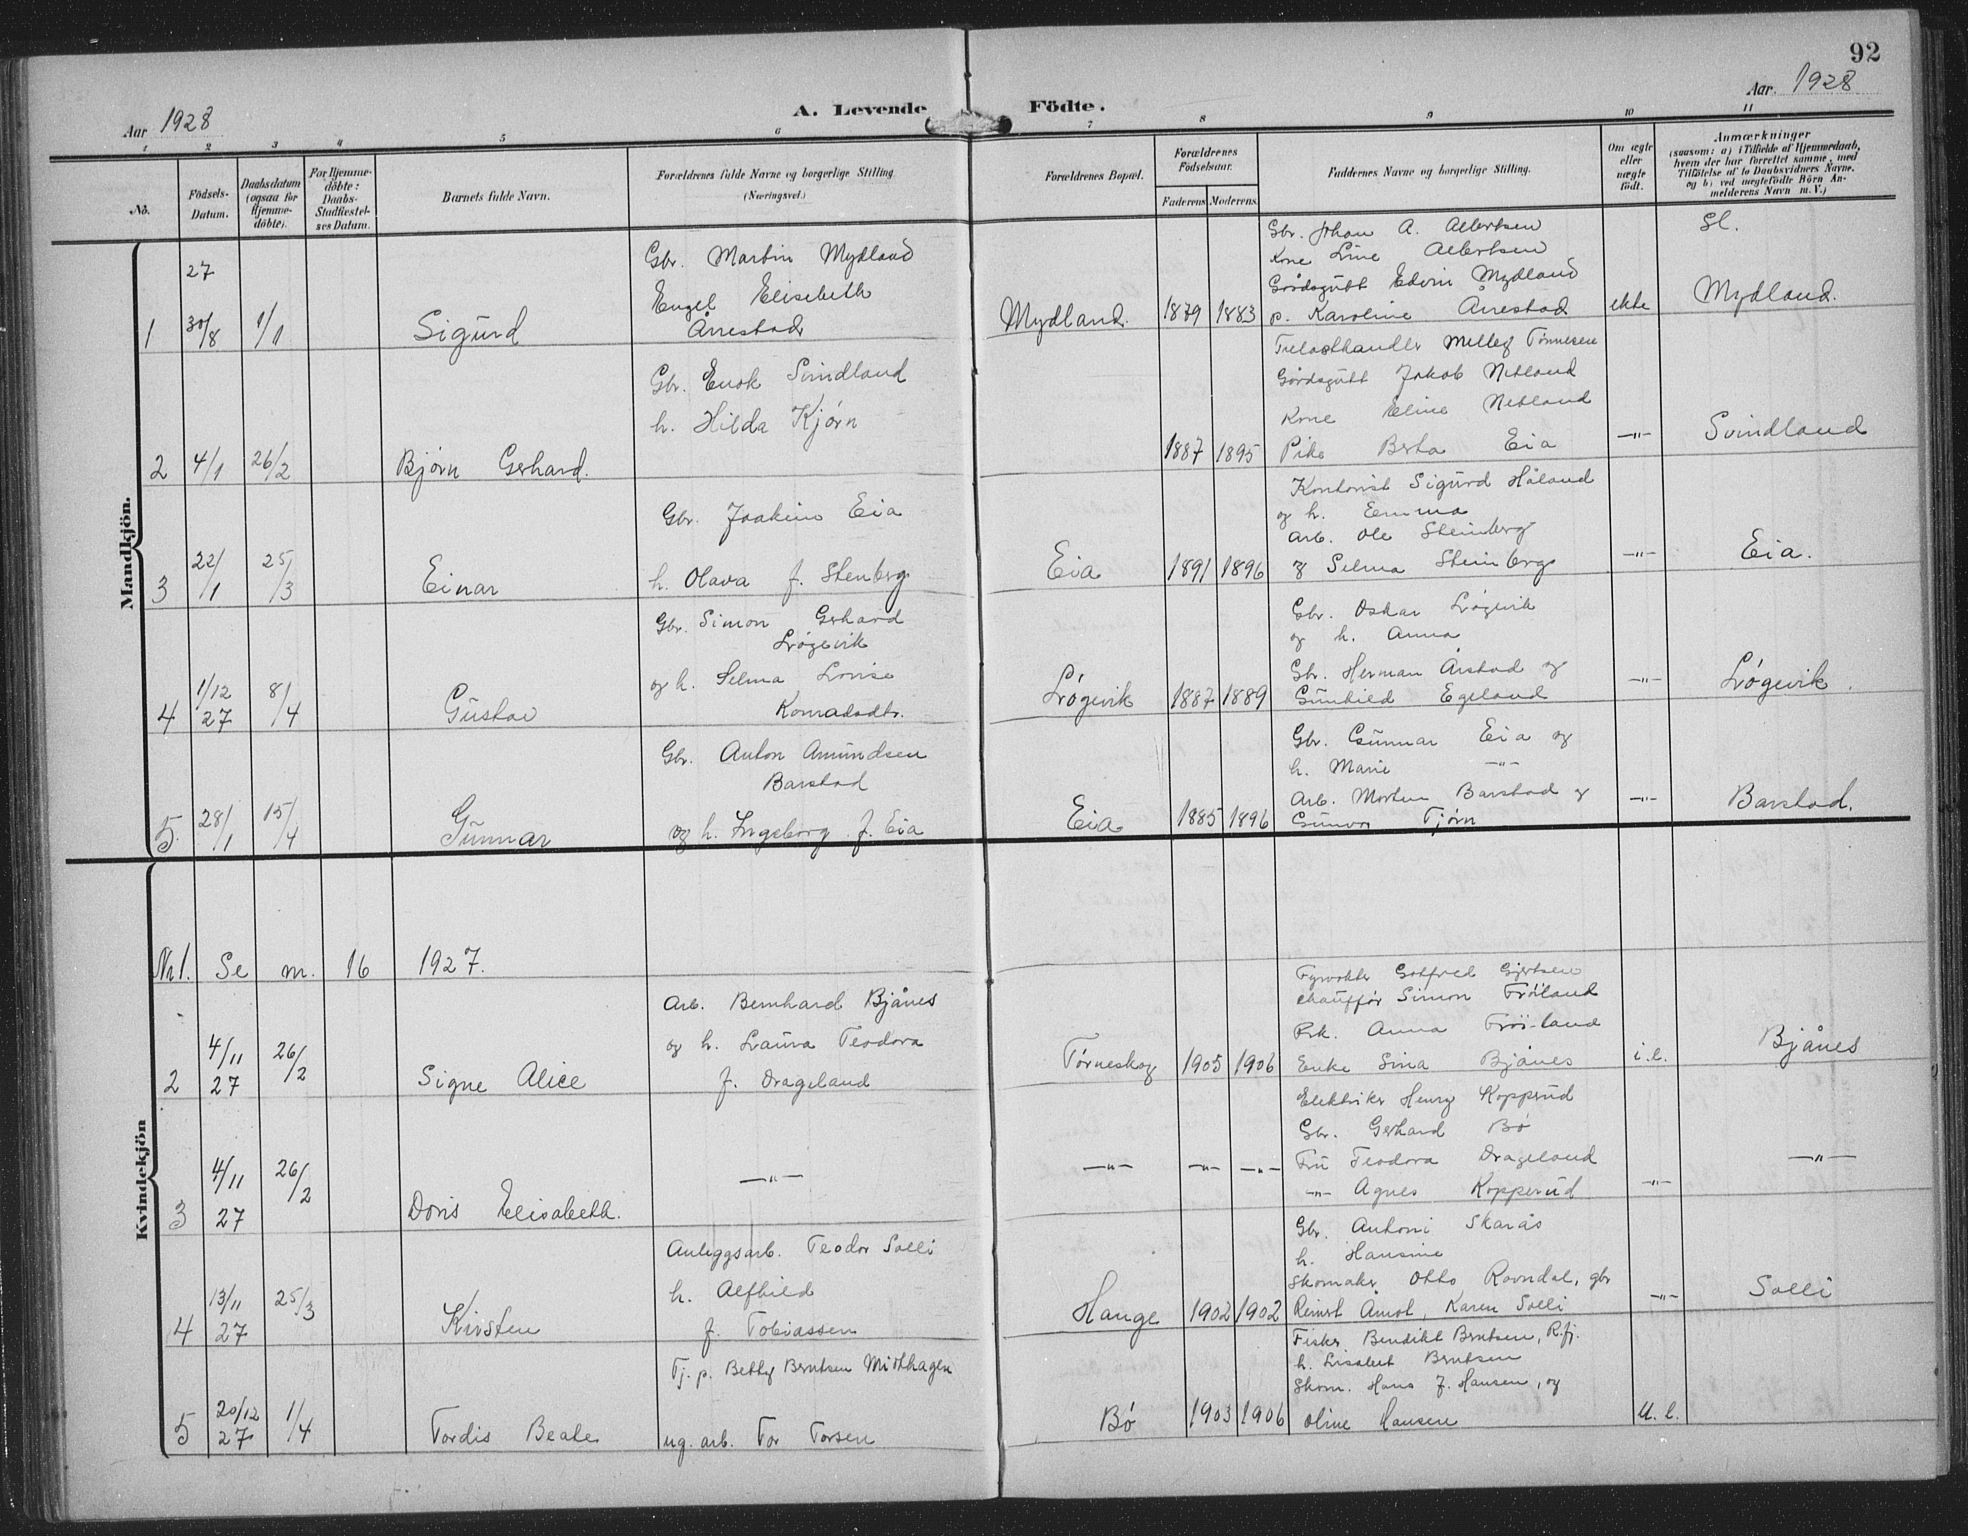 92
Aar 1928
A. Levende Födte.
Aar. 1928
1 2 3 4 5 6 7 8 9 10 11
No.
Födsels-Datum.
Daabsdatum (ogsaa for Hjemme-döbte).
For Hjemme-döbte: Daabs-Stadfæstel-ses Datum.
Barnets fulde Navn.
Forældrenes fulde Navne og borgerlige Stilling (Næringsvei.)
Forældrenes Bopæl.
Forældrenes Födselsaar.
Faderens Moderens
Faddernes Navne og borgerlige Stilling.
Om ægte eller uægte födt.
Anmærkninger
(saasom: a) i Tilfælde af Hjemmedaab, hvem der har forrettet samme, med Tilföielse af to Daabsvidners Navne, og b) ved uægtefödte Börn Anmelderens Navn m. V.)
Mandkjön.
1 27 30/8 1/1 Sigurd
Gbr. Martin Mydland
Engel Elisebeth
Årrestad
Mydland. 1879 1883
Gbr. Johan A. Albertsen
Kone Line Albertsen
Gårdsgutt Edvin Mydland
p. Karoline Årrestad
ekte
Sl.
Mydland.
2 4/1 26/2 Bjørn Gerhard.
Gbr. Enok Svindland
h. Hilda Kjørn
1887 1895
Trelasthandler Mellef Tønnesen
Gårdsgutt Jakob Netland
Kone Eline Netland
Pike Berta Eia
—"—
Svindland
3 22/1 25/3 Einar
Gbr. Joakim Eia
h. Olava f. Stenberg
Eia 1891 1896
Kontorist Sigurd Håland
og h. Emma
Arb. Ole Steinberg
og Selma Steinberg
—"—
Eia.
4 1/12 27 8/4 Gustav
Gbr. Simon Gerhard
Løgevik
og h. Selma Lovise
Konradsdtr.
Løgevik 1887 1889
Gbr. Oskar Løgevik
og h. Anna
Gbr. Herman Årstad og
Gunhild Egeland
—"—
Løgevik.
5. 28/1 15/4 Gunnar
Gbr. Anton Amundsen
Barstad
og h. Ingeborg f. Eia
Eia 1885 1896
Gbr. Gunnar Eia og
h. Marie —"—
Arb. Morten Barstad og
Gunvor Tjørn
—"—
Barstad.
Kvindekjön
Nr 1. Se nr. 16 1927.
2 4/11 27 26/2 Signe Alice
Arb. Bernhard Bjånes
og h. Laura Teodora
f. Drageland
Tørneskog 1905 1906
Fyrvokter Gotfred Gjertsen
Chauffør Simon Frøiland
Prk. Anna Frøiland
Enke Sina Bjånes
i.e.
Bjånes
3 4/11 27 26/2 Doris Elisabeth.
—"—
—"— —"— —"—
Elektriker Henry Kopperud
Gbr. Gerhard Bø
Fru Teodora Drageland
—"— Agnes Kopperud
—"—
—"—
4 13/11 27 25/3 Kirsten
Anleggsarb. Teodor Solli
h. Alfhild
f. Tobiassen
Hauge 1902 1902
Gbr. Antoni Skarås
h. Hansine
Skomaker Otto Rovndal, gbr
Reinert Åmot, Karen Solli
—"—
Solli
5 20/12 27 1/4 Tordis Beate
Tj. p. Betty Berntsen Midthagen
ug. arb. Tor Torsen
Bø 1903 1906
Fisker Bendikt Berntsen, R.fj.
h. Lisabet Berntsen
Skom. Hans J. Hansen, og
Oline Hansen
u. e.